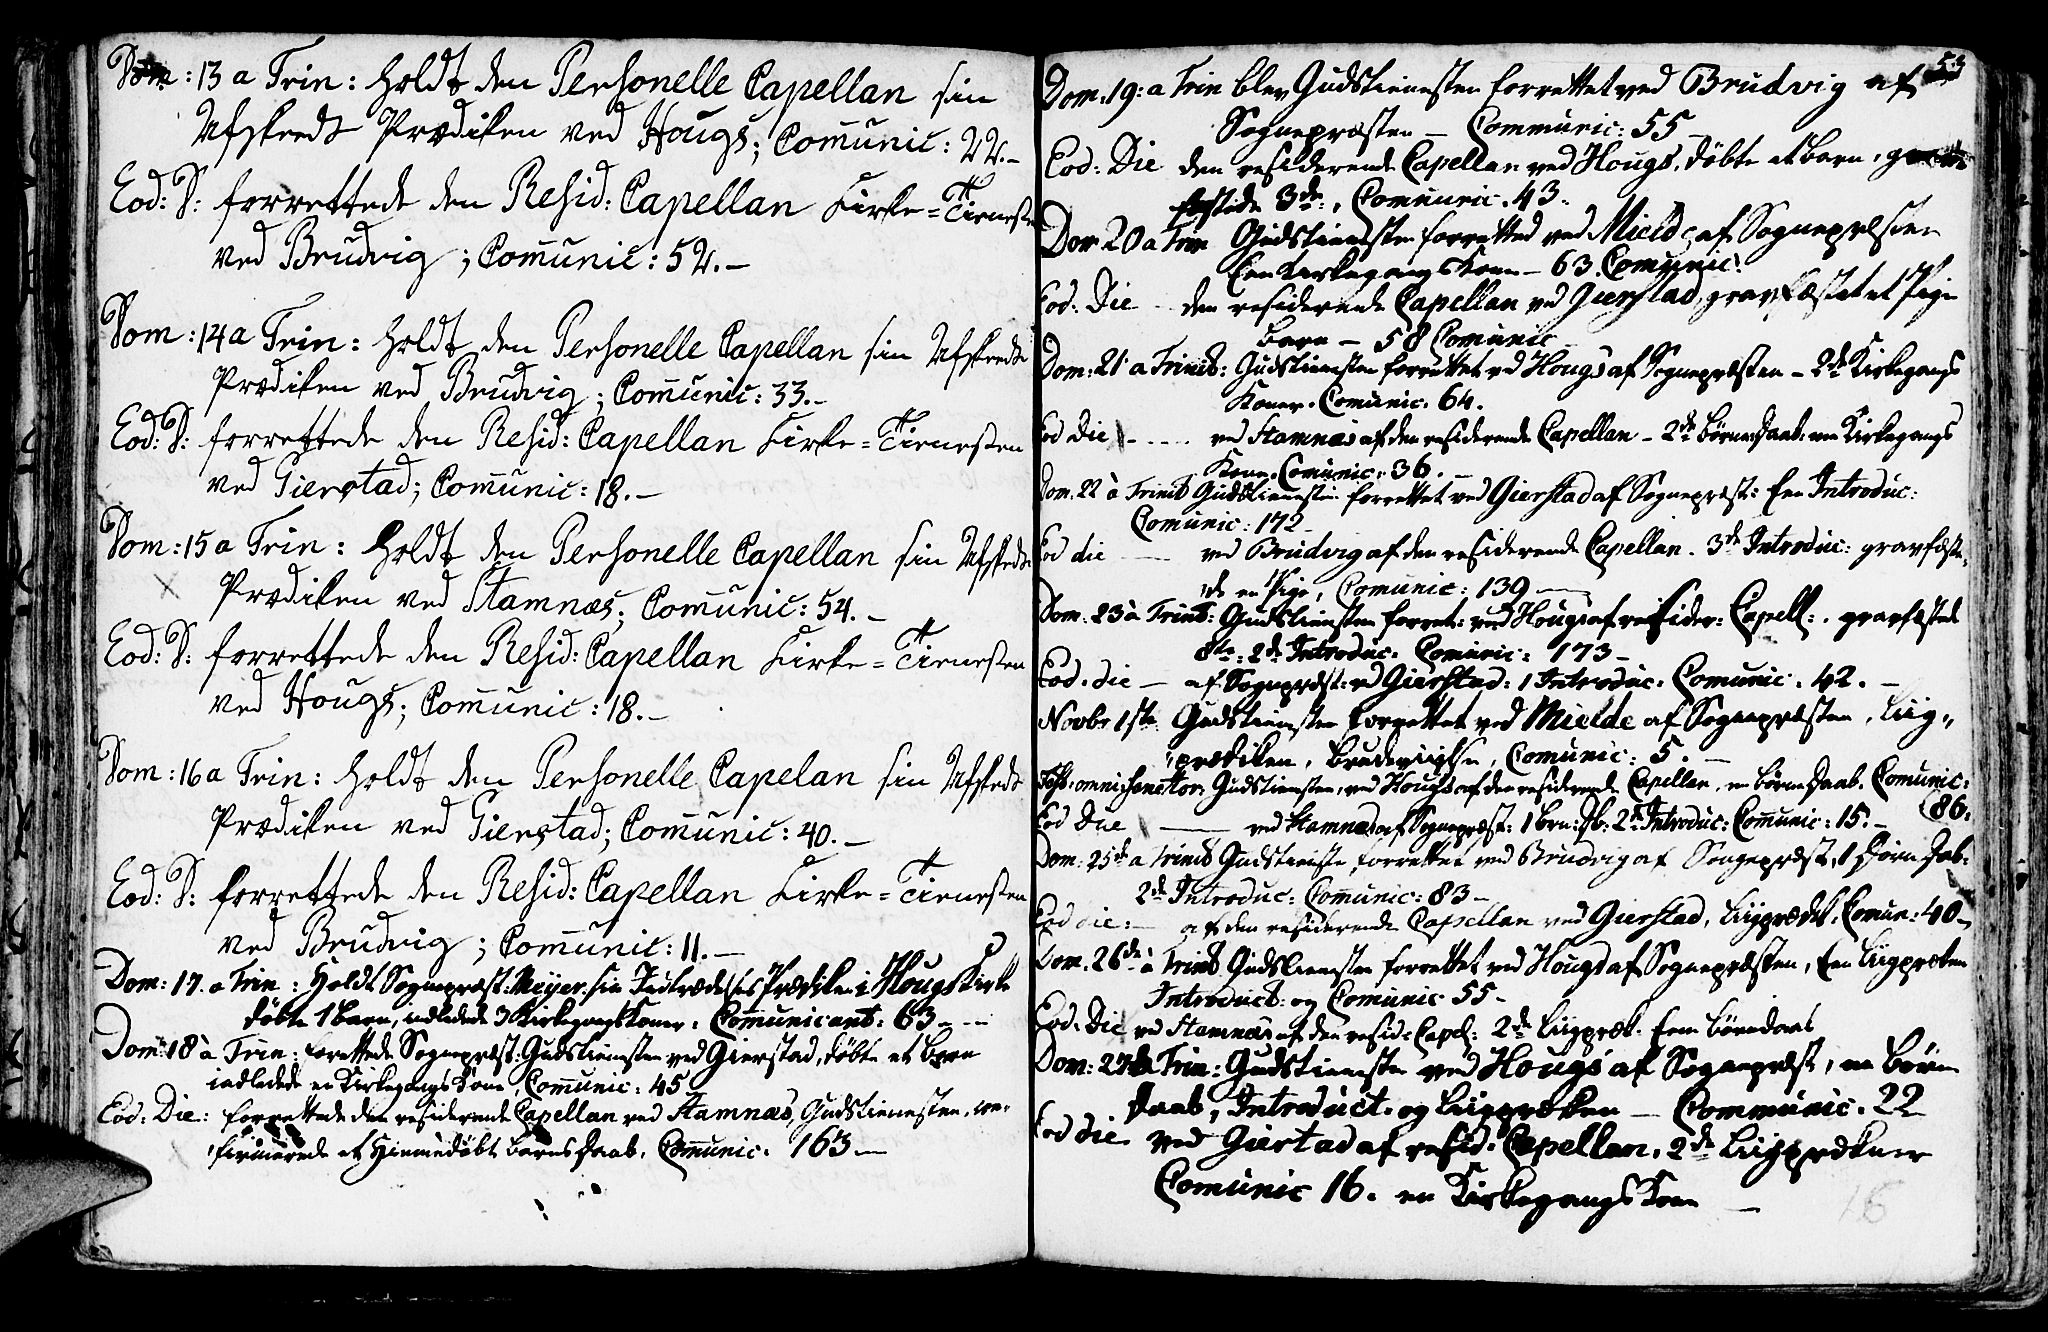 Dom: 13 a Trin: Holdt den Personelle Capellan sin
Afskeeds Prædiken ved Hougs; Comunic: 22.-
Eod: D: forrettede den Resid: Capellan Kirke=Tienesten
ved Brudvig; Comunic: 52.-
Dom: 14 a Trin: Holdt den Personelle Capellan sin Afskeeds
Prædiken ved Brudvig; Comunic: 33.-
Eod: D: forrettede den Resid: Capellan Kirke=Tienesten
ved Gierstad; Comunic: 18.-
Dom: 15 a Trin: Holdt den Personelle Capellan sin Afskeeds
Prædiken ved Stamnæs; Comunic: 54.-
Eod: D: forrettede den Resid: Capellan Kirke=Tienesten
ved Hougs; Comunic: 18.-
Dom: 16 a Trin: Holdt den Personelle Capelan sin Afskeeds
Prædiken ved Gierstad; Comunic: 40.-
Eod: D: forrettede den Resid: Capellan Kirke=Tienesten
ved Brudvig; Comunic: 11.-
Dom: 17. a Trin: Holdt Sognepræst: Meyer sin Indtrædelses Prædiken i Hougs Kirke
døbte 1 barn, indledede 3 Kirkegangs Koner. Communicant: 63 -
Dom: 18 à Trin: forettede Sognepræst: Gudstienesten ved Gierstad, døbte et barn
indledede en Kirkegangs Kone, Comunic: 45
Eod: Die: forrettede den residerende Capellan ved Stamnæs, Gudstienesten, con-
firmerede et Hiemmedøbt barns Daab. Comunic. 163 -
53
Dom: 19: a Trin blev Gudstienesten forrettet ved Brudvig af
Sognepræsten - Communic: 55
Eod: Die den residerende Capellan ved Hougs, døbte et barn,
fæstede 3de, Communic. 43.
Dom 20 a Trin Gudstienesten forretted ved Mielde af Sognepræsten
Een Kirkegangs Kone - 63. Comunic.
Eod: Die den residerende Capellan ved Gierstad, gravfæstet et Pige
barn - 58 Comunic
Dom: 21 a Trinit: Gudstienesten forrettet ved Hougs af Sognepræsten - 2de Kirkegangs
Koner. Comunic. 64.
Eod die - ved Stamnæs af den residerende Capellan - 2de børne Daab. een Kirkegangs
Kone. Comunic: 36.
Dom. 22 à Trinit Gudstienesten forrettet ved Gierstad af Sognepræst: Een Introduc:
Comunic: 172
Eod die - ved Brudvig af den residerende Capellan. 3de Introduc: gravfæste-
de en Pige, Comunic: 139 -
Dom. 23 à Trinit: Gudstienesten forret: ved Hougs af resider: Capell: gravfæsted
8te: 2de Introduc: Comunic: 173 -
Eod. die - af Sognepræst: ved Gierstad: 1 Introduc. Comunic. 42. -
Novbr 1ste Gudstienesten forrettet ved Mielde af Sognepræsten, Liig-
prædiken, brudevielse, Comunic: 5. -
Fest: omni: Sanctor: Gudstienesten ved Hougs af den residerende Capellan, en børne Daab. Comunic:
86.
Eod Die - ved Stamnæs af Sognepræst: 1 brn: Db: 2de Introduc: Communic: 15. -
Dom: 25de a Trinit Gudstieneste forrettet ved Brudvig af Sognepræst, 1 Børne Dab:
2de Introduc: Comunic: 83 -
Eod die: - af den residerende Capellan ved Gierstad, Liigpræd. Comun: 40 -
Dom. 26de à Trinit Gudstienesten forrettet ved Hougs af Sognepræsten, Een Liigpræken
Introduct: og Comunic 55 -
Eod. Die ved Stamnæs af den resid: Capel: 2de Liigpræk. Een børnedaab
Dom: 27de Trin: Gudstienesten ved Hougs af Sognepræst, en børne
Daab, Introduct. og Liigpræken - Communic. 22
Eod die ved Gierstad af resid: Capellan. 2de Liigprækener
Comunic 16. en Kirkegangs Kone -
16